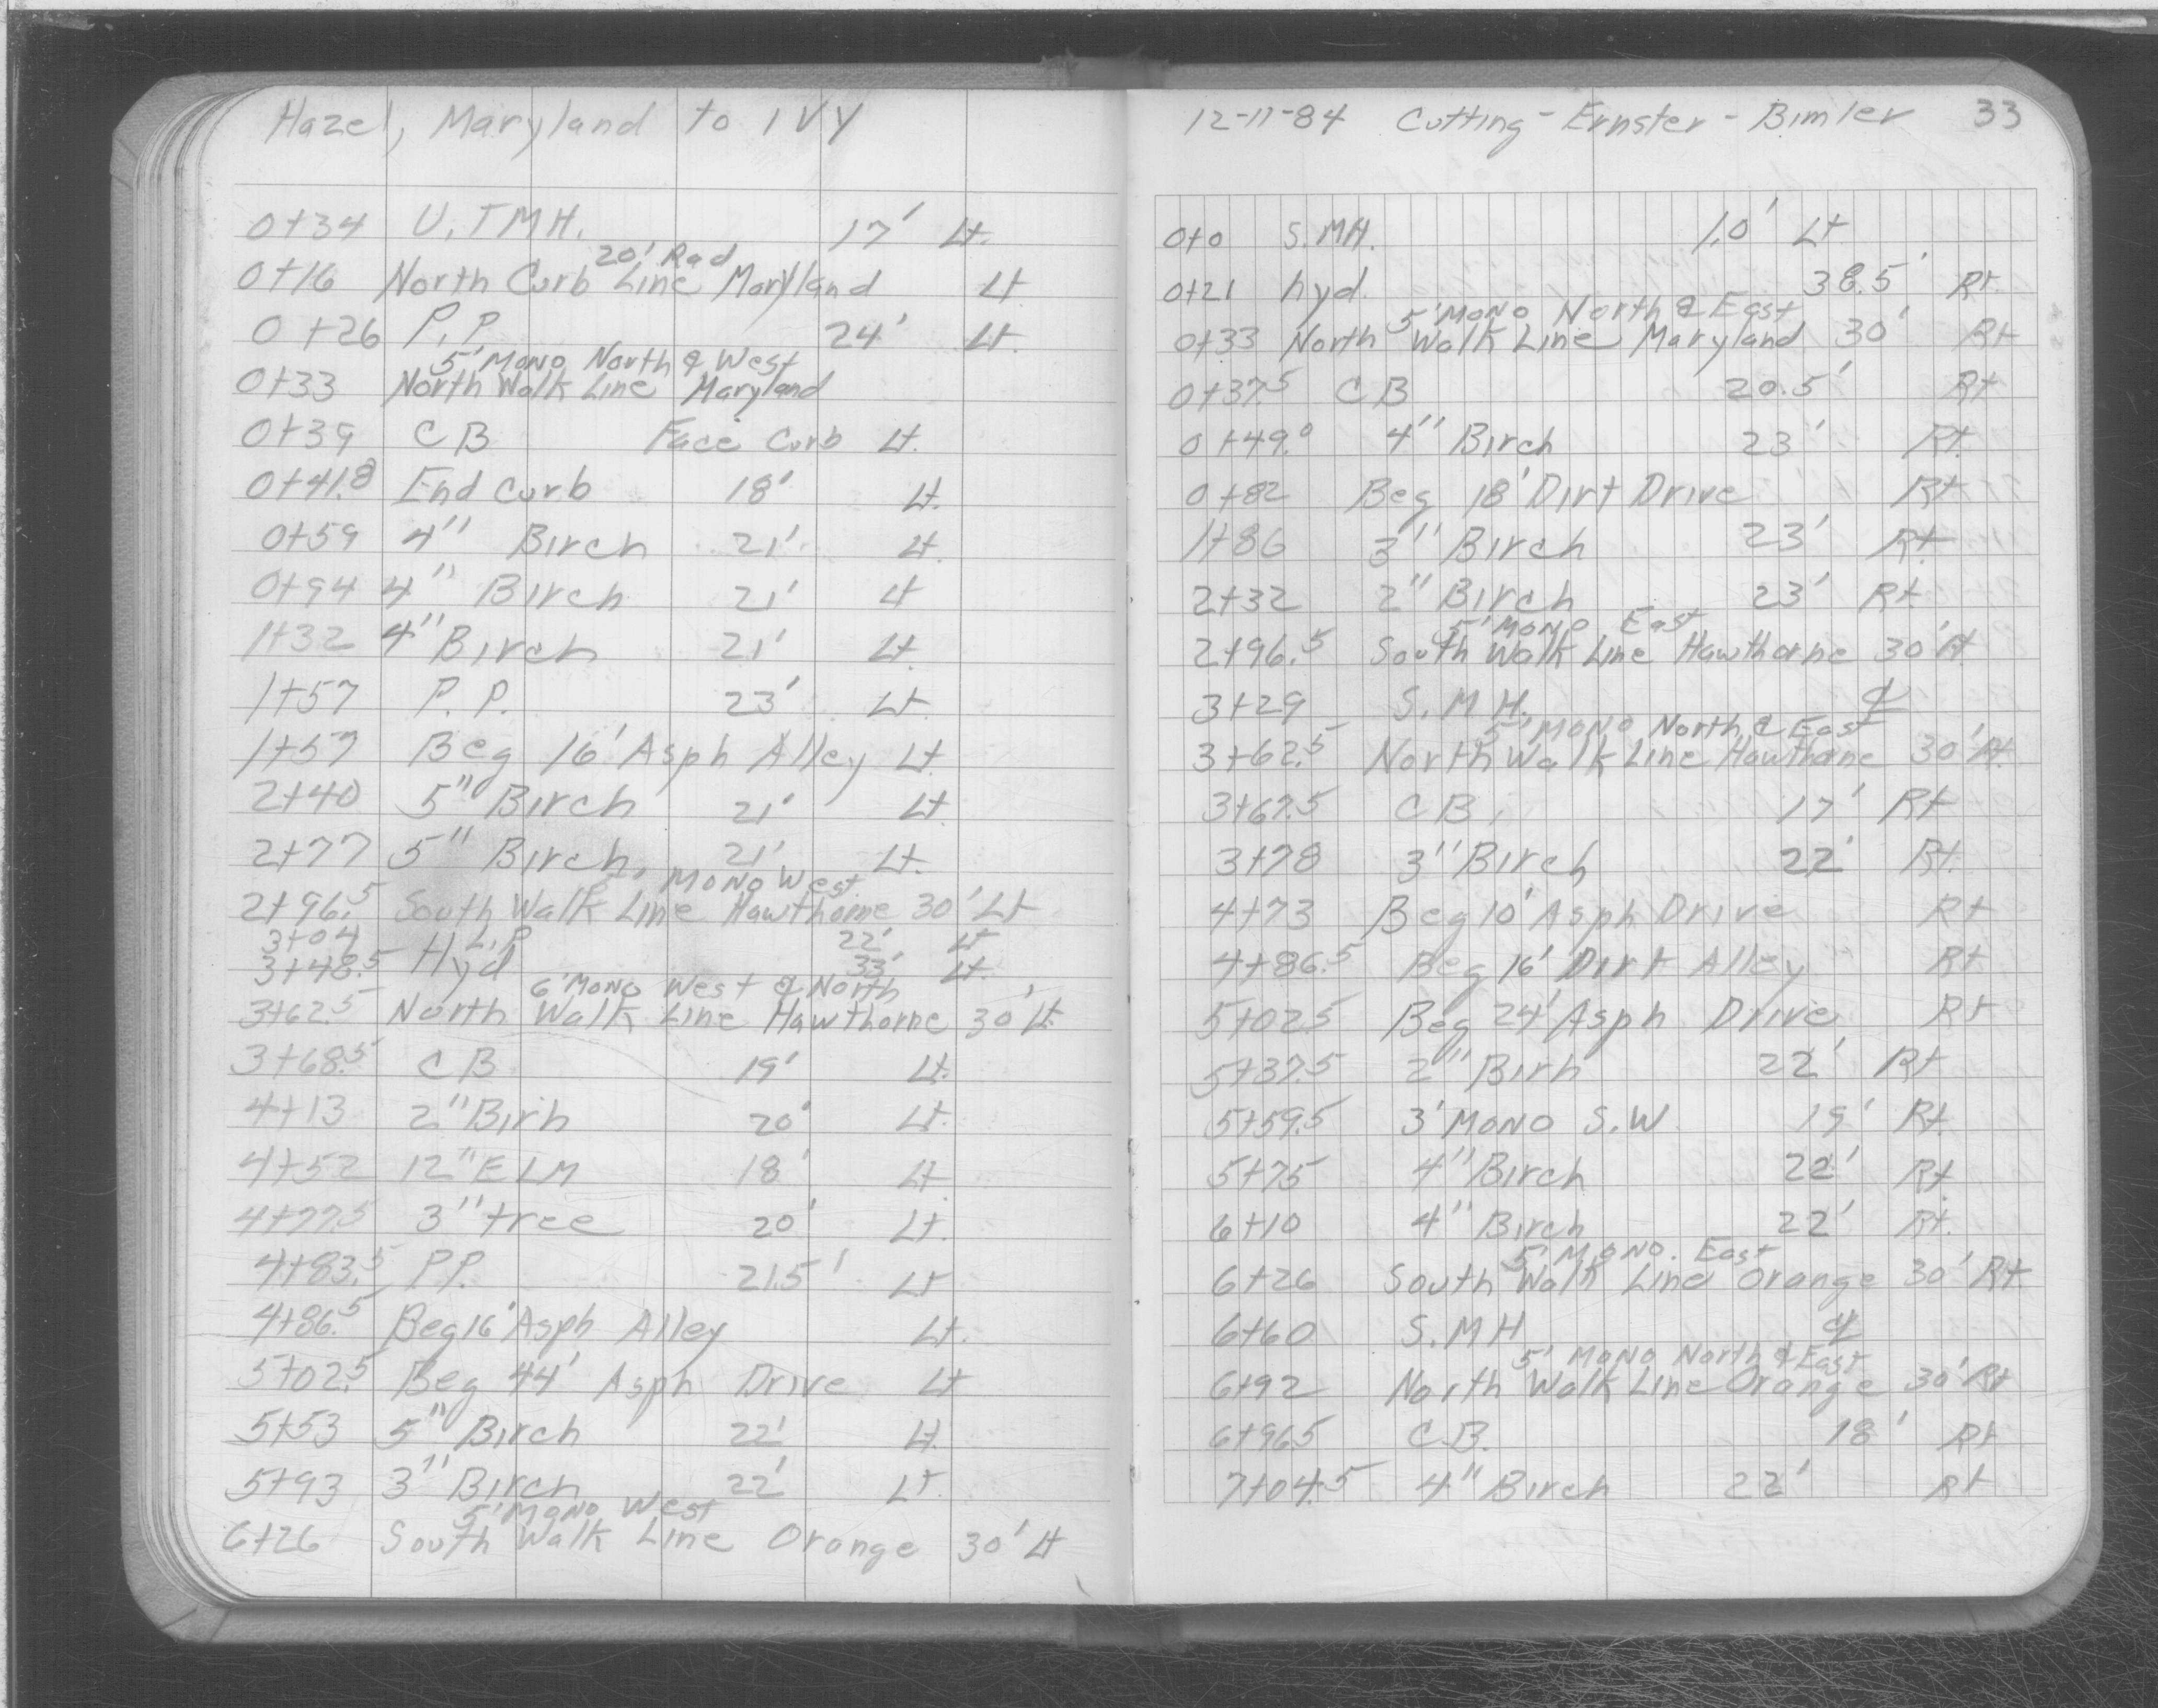 Hazel, Maryland to IVY
0+34 U.T.M.H. 17' Lt.
20' Rad
0+16 North Curb Line Maryland Lt
0+26 P.P. 24' Lt.
5' Mono North & West
0+33 North Walk Line Maryland
0+39 CB Face Curb Lt.
0+41.8 End Curb 18' Lt.
0+59 4" Birch 21' Lt.
0+94 4" Birch 21' Lt
1+32 4" Birch 21' Lt.
1+57 P.P. 23' Lt.
1+57 Beg 16' Asph Alley Lt.
2+40 5" Birch 21' Lt.
2+77 5" Birch, 21' Lt.
Mono West
2+96.5 South Walk Line Hawthorne 30' Lt
3+04 L.P 22' Lt
3+48.5 Hyd 33' Lt.
6' Mono West & North
3+62.5 North Walk Line Hawthorne 30' Lt.
3+68.5 CB 19' Lt.
4+13 2" Birh 20' Lt.
4+52 12" ELM 18' Lt
4+77.5 3" tree 20' Lt.
4+83.5 P.P. 21.5' Lt
4+86.5 Beg 16' Asph Alley Lt.
5+02.5 Beg 44' Asph Drive Lt
5+53 5" Birch 22' Lt.
5+93 3" Birch 22' Lt.
5' Mono West
6+26 South Walk Line Orange 30' Lt
12-11-84 Cutting - Ernster - Bimler 33
0+0 S.MH. 1.0' Lt
0+21 hyd. 38.5' Rt.
5' Mono North & East
0+33 North Walk Line Maryland 30' Rt
0+37.5 CB 20.5' Rt
0+49.0 4" Birch 23' Rt.
0+82 Beg 18' Dirt Drive Rt
1+86 3" Birch 23' Rt.
2+32 2" Birch 23' Rt.
5' Mono East
2+96.5 South Walk Line Hawthorne 30' Rt
3+29 S.M.H. ℄
5' Mono North & East
3+62.5 North Walk Line Hawthorne 30' Rt.
3+67.5 CB. 17' Rt
3+78 3" Birch 22' Rt.
4+73 Beg 10' Asph Drive Rt
4+86.5 Beg 16' Dirt Alley Rt.
5+02.5 Beg 24' Asph Drive Rt
5+37.5 2" Birh 22' Rt
5+59.5 3' Mono S.W. 19' Rt.
5+75 4" Birch 22' Rt.
6+10 4" Birch 22' Rt.
5' Mono. East
6+26 South Walk Line Orange 30' Rt
6+60 S.MH ℄
5' Mono North & East
6+92 North Walk Line Orange 30' Rt
6+96.5 C.B. 18' Rt
7+04.5 4" Birch 22' Rt